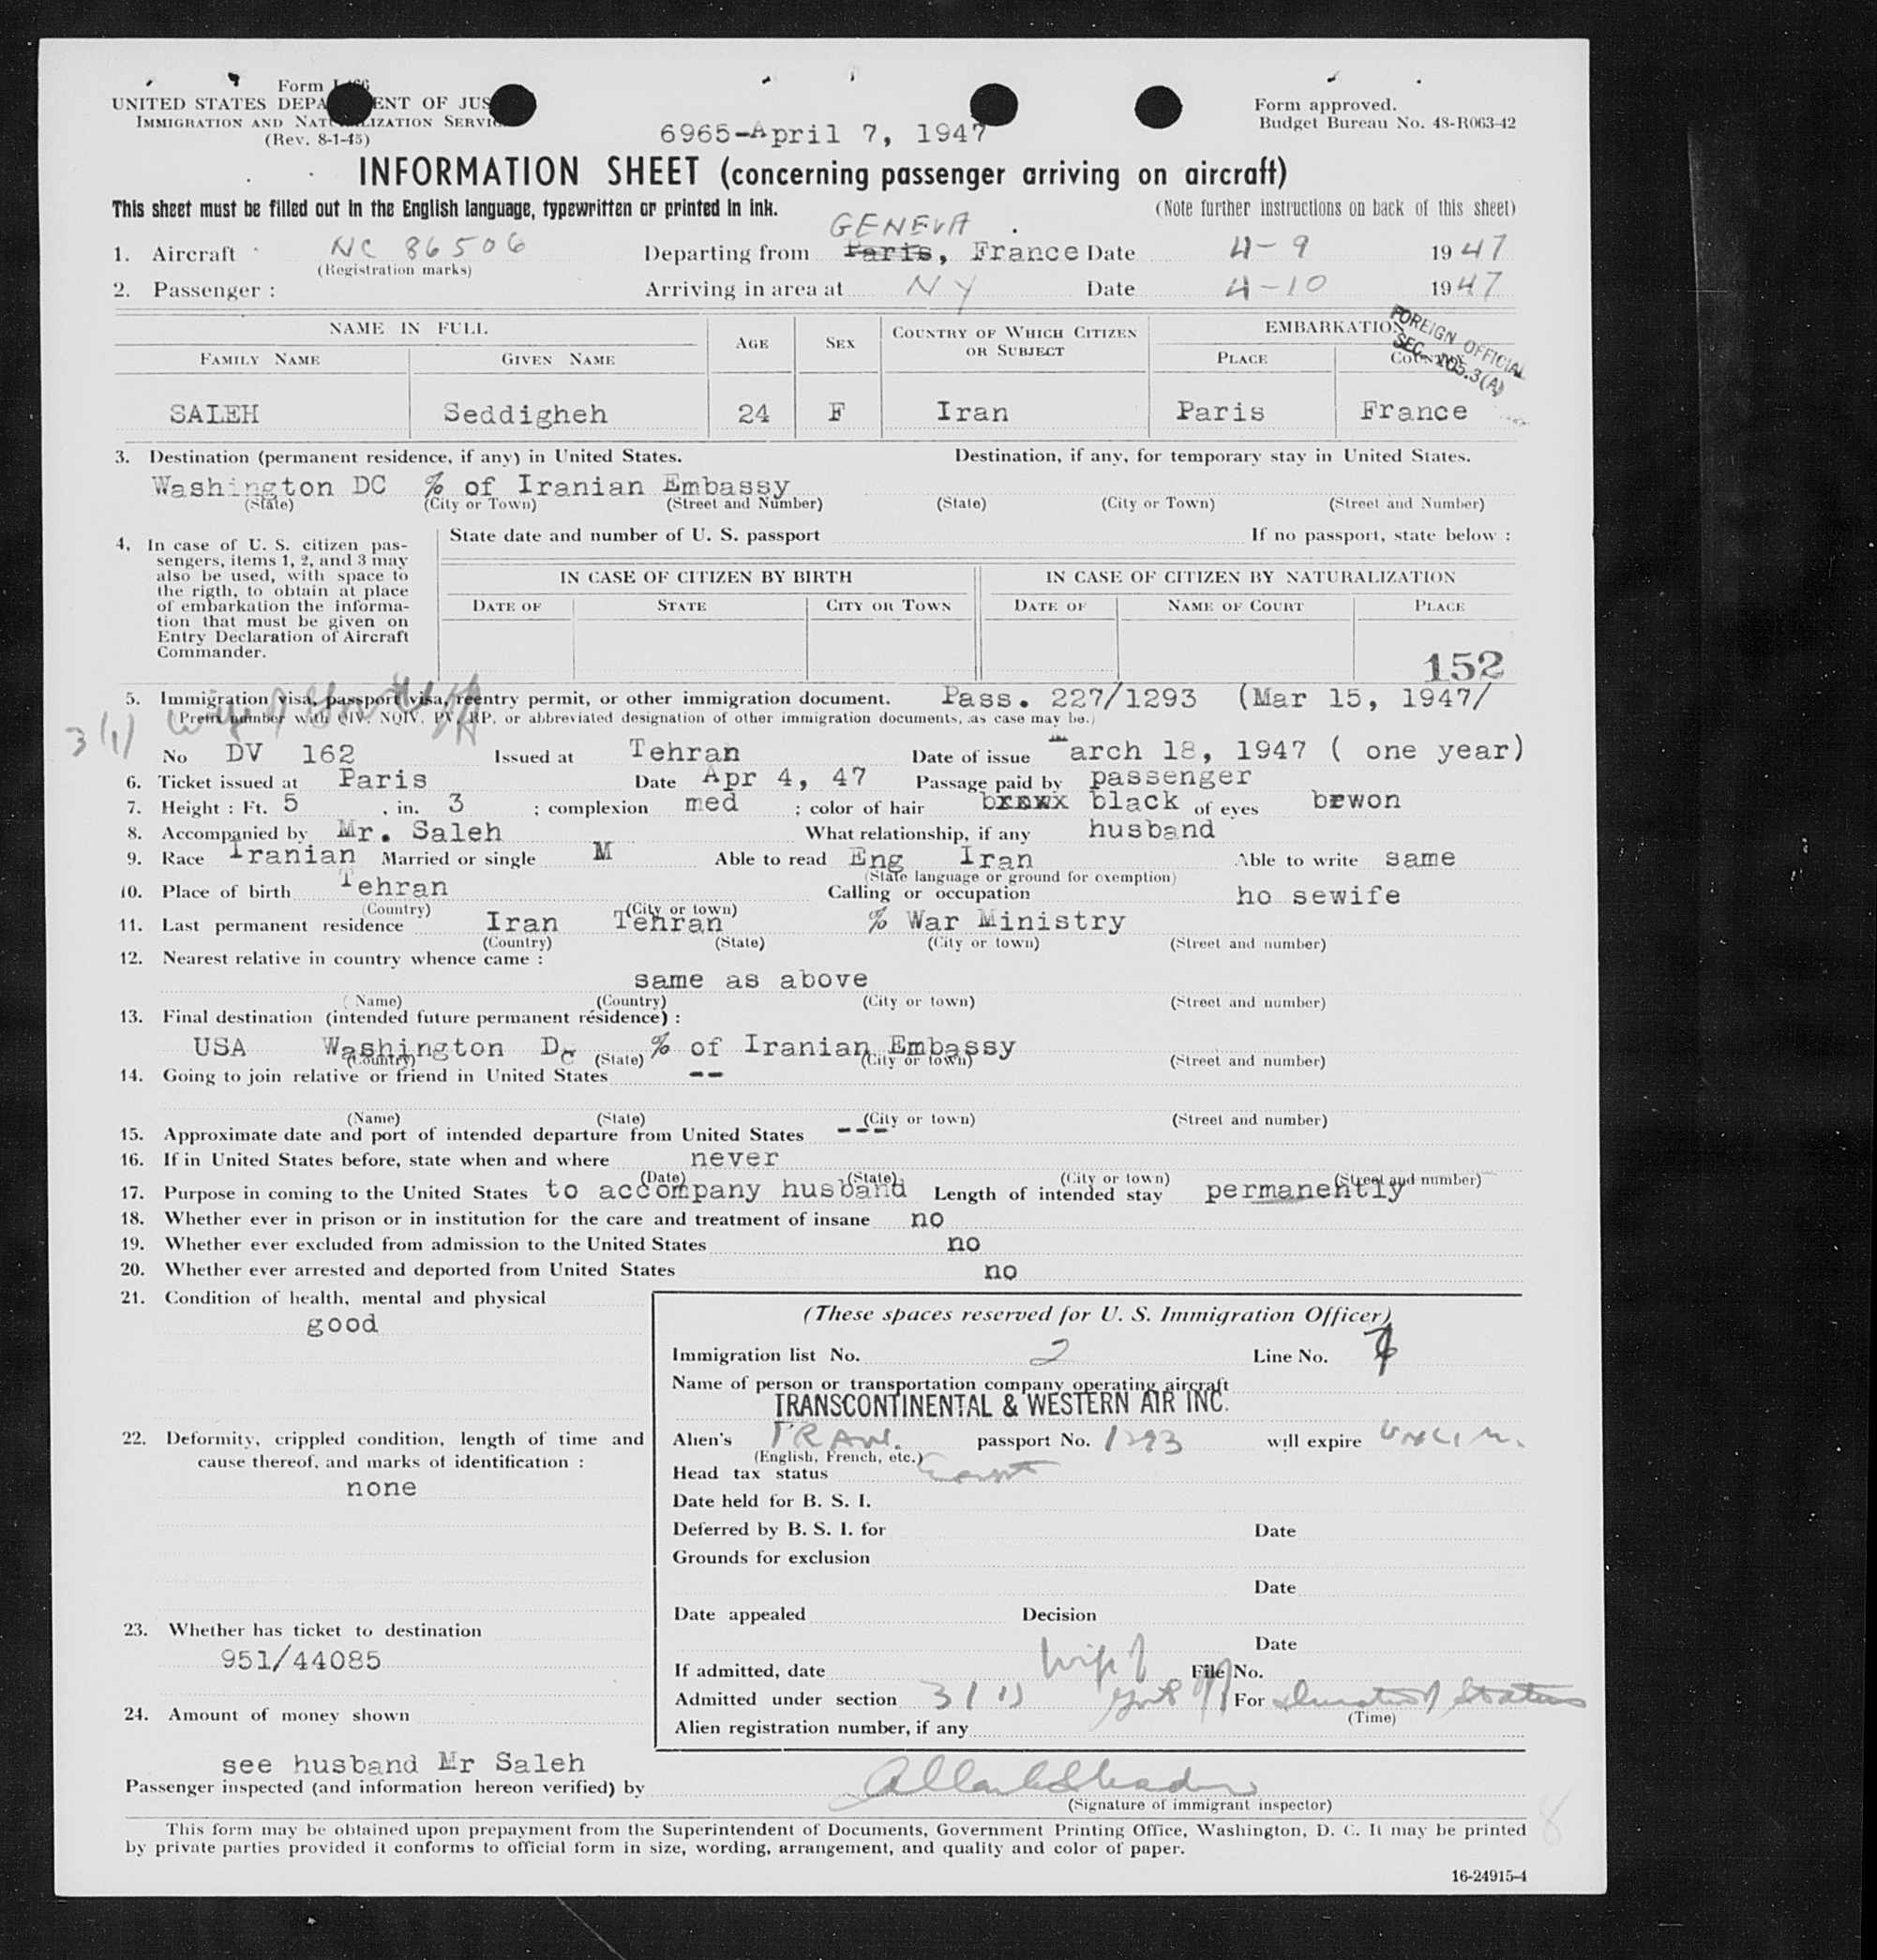 Form I-466
UNITED STATES DEPARTMENT OF JUSTICE
IMMIGRATION AND NATURALIZATION SERVICE
(Rev. 8-1-45)
6965-April 7, 1947
Form approved.
Budget Bureau No. 43-R063-42
INFORMATION SHEET (concerning passenger arriving on aircraft)
This sheet must be filled out in the English language, typewritten or printed in ink. (Note further instructions on back of this sheet)
GENEVA
1. Aircraft NC 86506 Departing from Paris, France Date 4-9 1947
(Registration marks)
2. Passenger : Arriving in area at NY Date 4-10 1947
FOREIGN OFFICIAL
SEC. 105.3(A)
NAME IN FULL AGE SEX COUNTRY OF WHICH CITIZEN OR SUBJECT EMBARKATION
FAMILY NAME GIVEN NAME PLACE COUNTRY
SALEH Seddigheh 24 F Iran Paris France
3. Destination (permanent residence, if any) in United States. Destination, if any, for temporary stay in United States.
Washington DC % of Iranian Embassy
(State) (City or Town) (Street and Number) (State) (City or Town) (Street and Number)
4. In case of U. S. citizen pas-
sengers, items 1, 2, and 3 may
also be used, with space to
the rigth, to obtain at place
of embarkation the informa-
tion that must be given on
Entry Declaration of Aircraft
Commander.
State date and number of U. S. passport If no passport, state below :
IN CASE OF CITIZEN BY BIRTH IN CASE OF CITIZEN BY NATURALIZATION
DATE OF STATE CITY OR TOWN DATE OF NAME OF COURT PLACE
152
5. Immigration visa, passport visa, reentry permit, or other immigration document. Pass. 227/1293 (Mar 15, 1947/
(Prefix number with QIV, NQIV, PV, RP, or abbreviated designation of other immigration documents, as case may be.)
3(1)
No DV 162 Issued at Tehran Date of issue March 18, 1947 ( one year)
6. Ticket issued at Paris Date Apr 4, 47 Passage paid by passenger
7. Height : Ft. 5 , in. 3 ; complexion med ; color of hair brnwx black of eyes brwon
8. Accompanied by Mr. Saleh What relationship, if any husband
9. Race Iranian Married or single M Able to read Eng Iran Able to write same
(State language or ground for exemption)
10. Place of birth Tehran Calling or occupation ho sewife
(Country) (City or town)
11. Last permanent residence Iran Tehran % War Ministry
(Country) (State) (City or town) (Street and number)
12. Nearest relative in country whence came :
same as above
(Name) (Country) (City or town) (Street and number)
13. Final destination (intended future permanent résidence) :
USA Washington Dc % of Iranian Embassy
(Country) (State) (City or town) (Street and number)
14. Going to join relative or friend in United States --
(Name) (State) (City or town) (Street and number)
15. Approximate date and port of intended departure from United States ---
16. If in United States before, state when and where never
(Date) (State) (City or town) (Street and number)
17. Purpose in coming to the United States to accompany husband Length of intended stay permanently
18. Whether ever in prison or in institution for the care and treatment of insane no
19. Whether ever excluded from admission to the United States no
20. Whether ever arrested and deported from United States no
21. Condition of health, mental and physical
good
22. Deformity, crippled condition, length of time and
cause thereof, and marks of identification :
none
23. Whether has ticket to destination
951/44085
24. Amount of money shown
see husband Mr Saleh
(These spaces reserved for U. S. Immigration Officer)
Immigration list No. 2 Line No.
Name of person or transportation company operating aircraft
TRANSCONTINENTAL & WESTERN AIR INC.
Alien's IRAN. passport No. 1293 will expire
(English, French, etc.)
Head tax status
Date held for B. S. I.
Deferred by B. S. I. for Date
Grounds for exclusion
Date
Date appealed Decision
Date
If admitted, date wife of File No.
Admitted under section 3(1) For Duration of Status
(Time)
Alien registration number, if any
Passenger inspected (and information hereon verified) by
(Signature of immigrant inspector)
This form may be obtained upon prepayment from the Superintendent of Documents, Government Printing Office, Washington, D. C. It may be printed
by private parties provided it conforms to official form in size, wording, arrangement, and quality and color of paper.
8
16-24915-4